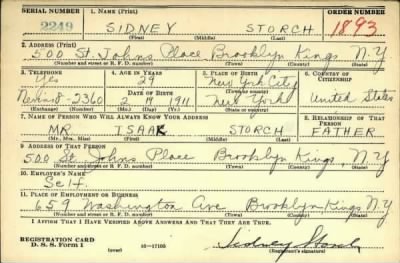 SERIAL NUMBER 1. NAME (Print) ORDER NUMBER
2249 SIDNEY STORCH 1893
(First) (Middle) (Last)
2. ADDRESS (Print)
500 St. Johns Place Brooklyn Kings N.Y
(Number and street or R. F. D. number) (Town) (County) (State)
3. TELEPHONE 4. AGE IN YEARS 5. PLACE OF BIRTH 6. COUNTRY OF CITIZENSHIP
29 New York City
DATE OF BIRTH (Town or county)
Nevins 8-2360 2 19 1911 New York United States
(Exchange) (No.) (Mo.) (Day) (Yr.) (State or country)
7. NAME OF PERSON WHO WILL ALWAYS KNOW YOUR ADDRESS 8. RELATIONSHIP OF THAT PERSON
MR. ISAAK STORCH FATHER
(Mr., Mrs., Miss) (First) (Middle) (Last)
9. ADDRESS OF THAT PERSON
500 St. Johns Place Brooklyn Kings, N.Y
(Number and street or R. F. D. number) (Town) (County) (State)
10. EMPLOYER'S NAME
Self.
11. PLACE OF EMPLOYMENT OR BUSINESS
659 Washington Ave Brooklyn Kings N.Y
(Number and street or R. F. D. number) (Town) (County) (State)
I AFFIRM THAT I HAVE VERIFIED ABOVE ANSWERS AND THAT THEY ARE TRUE.
REGISTRATION CARD
D. S. S. FORM 1 (over) 16—17105 Sidney Storch
(Registrant's signature)